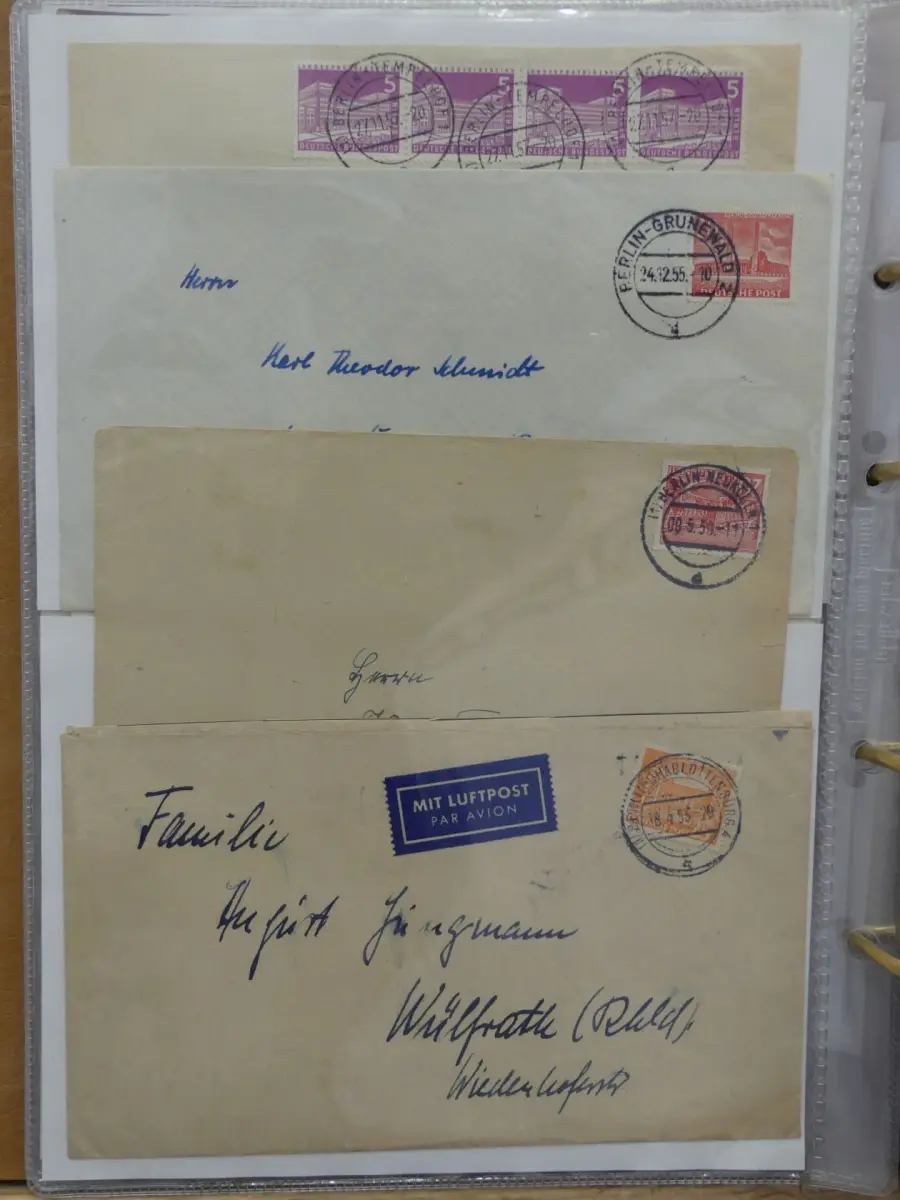 5 5 5 5
BERLIN-TEMPELHOF 1
27.11.57.-20
DEUTSCHE BUNDESPOST
BERLIN-GRUNEWALD 2
24.12.55.-10
d
DEUTSCHE POST
Herrn
Karl Theodor Schmidt
BERLIN-NEUKÖLLN 1
d
Herrn
MIT LUFTPOST
PAR AVION
BERLIN-CHARLOTTENBURG 4
Familie
August Jüngmann
Wülfrath (Rhld)
Wiedenhoferstr